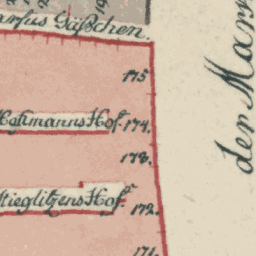 arfus Gäßchen.
175
Hohmanns Hof. 174.
173.
Stieglitzens Hof. 172.
171.
der Mars